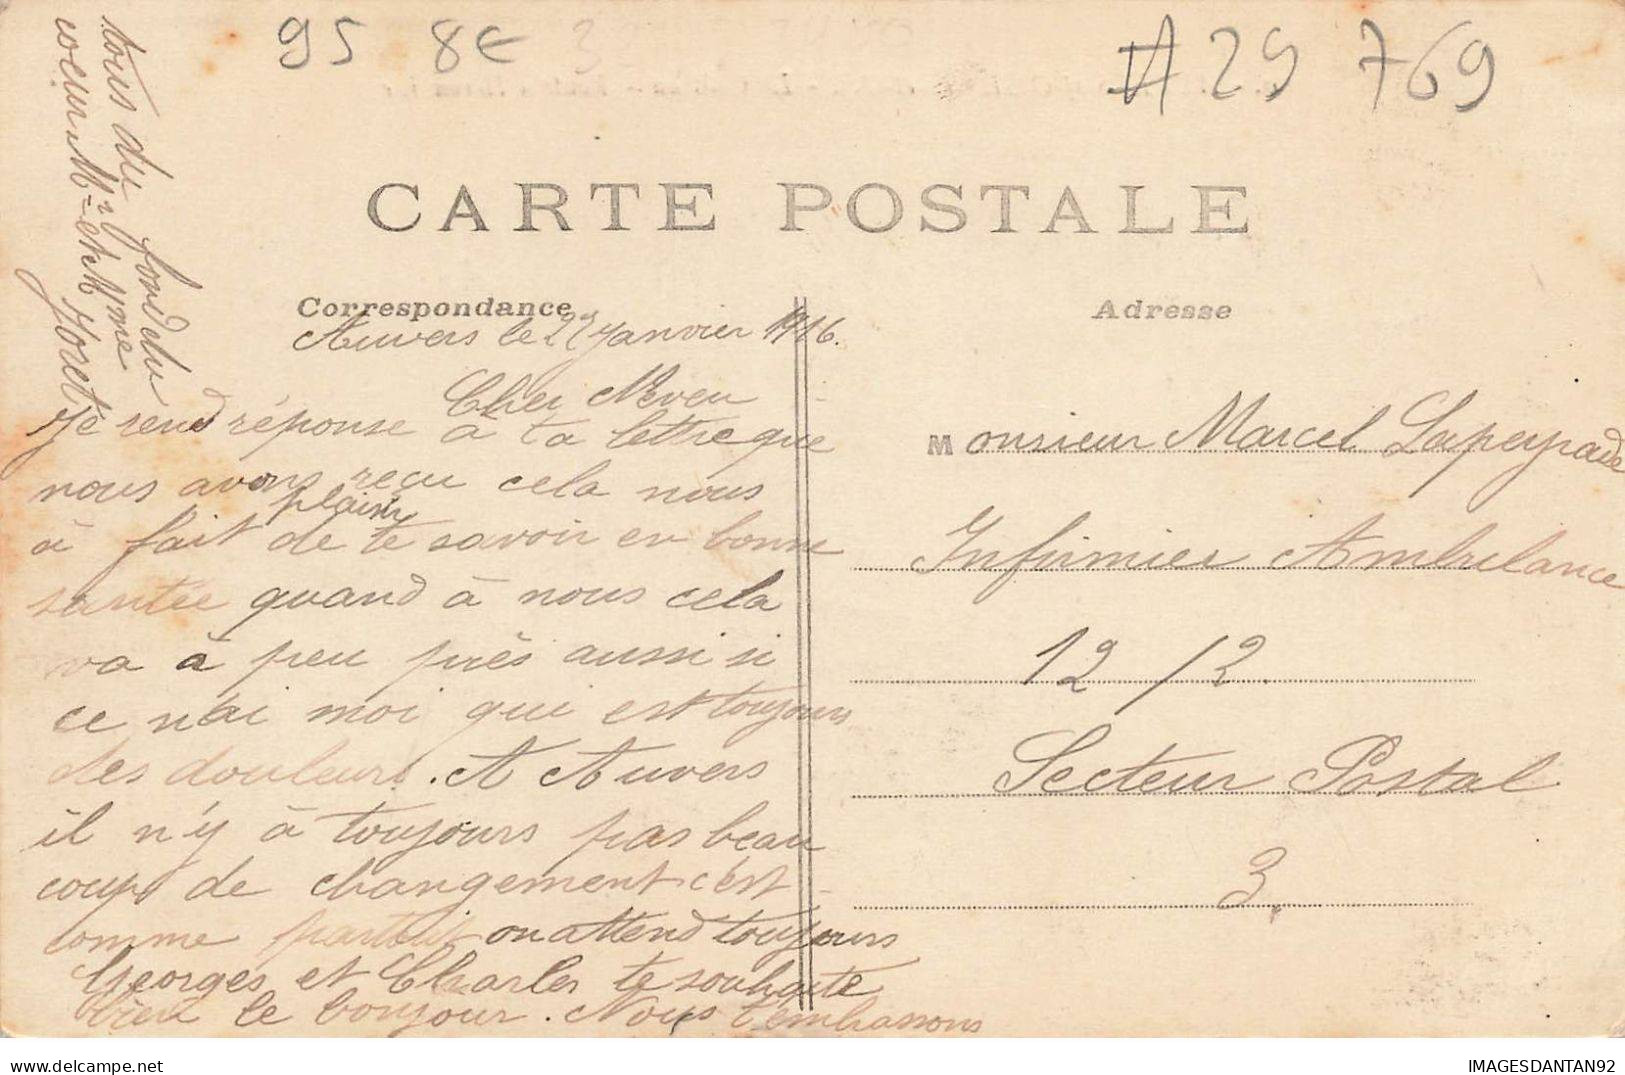 95 8€
#29 769
CARTE POSTALE
Correspondance
Adresse
Auvers le 22 Janvier 1916.
Cher Neveu
Je rend réponse à ta lettre que
nous avons reçu cela nous
à fait plaisir de te savoir en bonne
santée quand à nous cela
va à peu près aussi si
ce n'ai moi qui est toujours
des douleurs. A Auvers
il n'y à toujours pas beau
coup de changement c'est
comme partout on attend toujours
Georges et Charles te souhaite
bien le bonjour. Nous t'embrassons
tous du fond du
coeur Mr et Mme
Horet
Monsieur Marcel Lapeyrade
Infirmier Ambulance
12/2.
Secteur Postal
3.
IMAGESDANTAN92